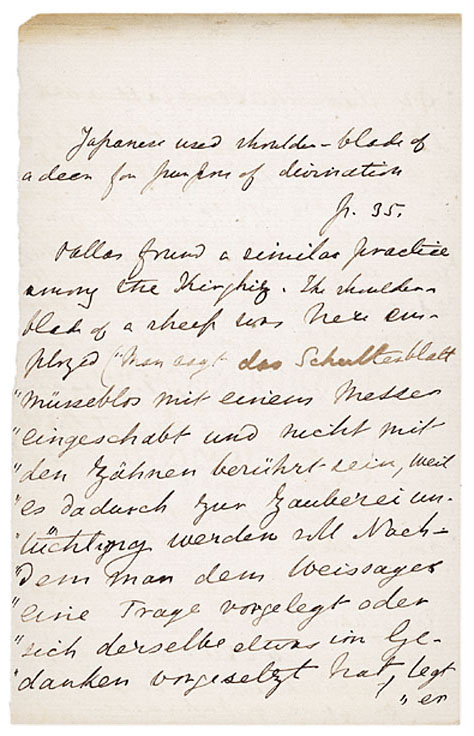 Japanese used shoulder-blade of
a deer for purpose of divination
p. 35.
Pallas found a similar practice
among the Kirghiz. The shoulder-
blade of a sheep was here em-
ployed ("Man sagt das Schulterblatt
"müsse blos mit einem Messer
"eingeschabt und nicht mit
"den Zähnen berührt sein, weil
"es dadurch zur Zauberei un-
"tüchtig werden soll Nach-
"dem man dem Weissager
"eine Frage vorgelegt oder
"sich derselbe etwas im Ge-
"danken vorgesetzt hat, legt
"er